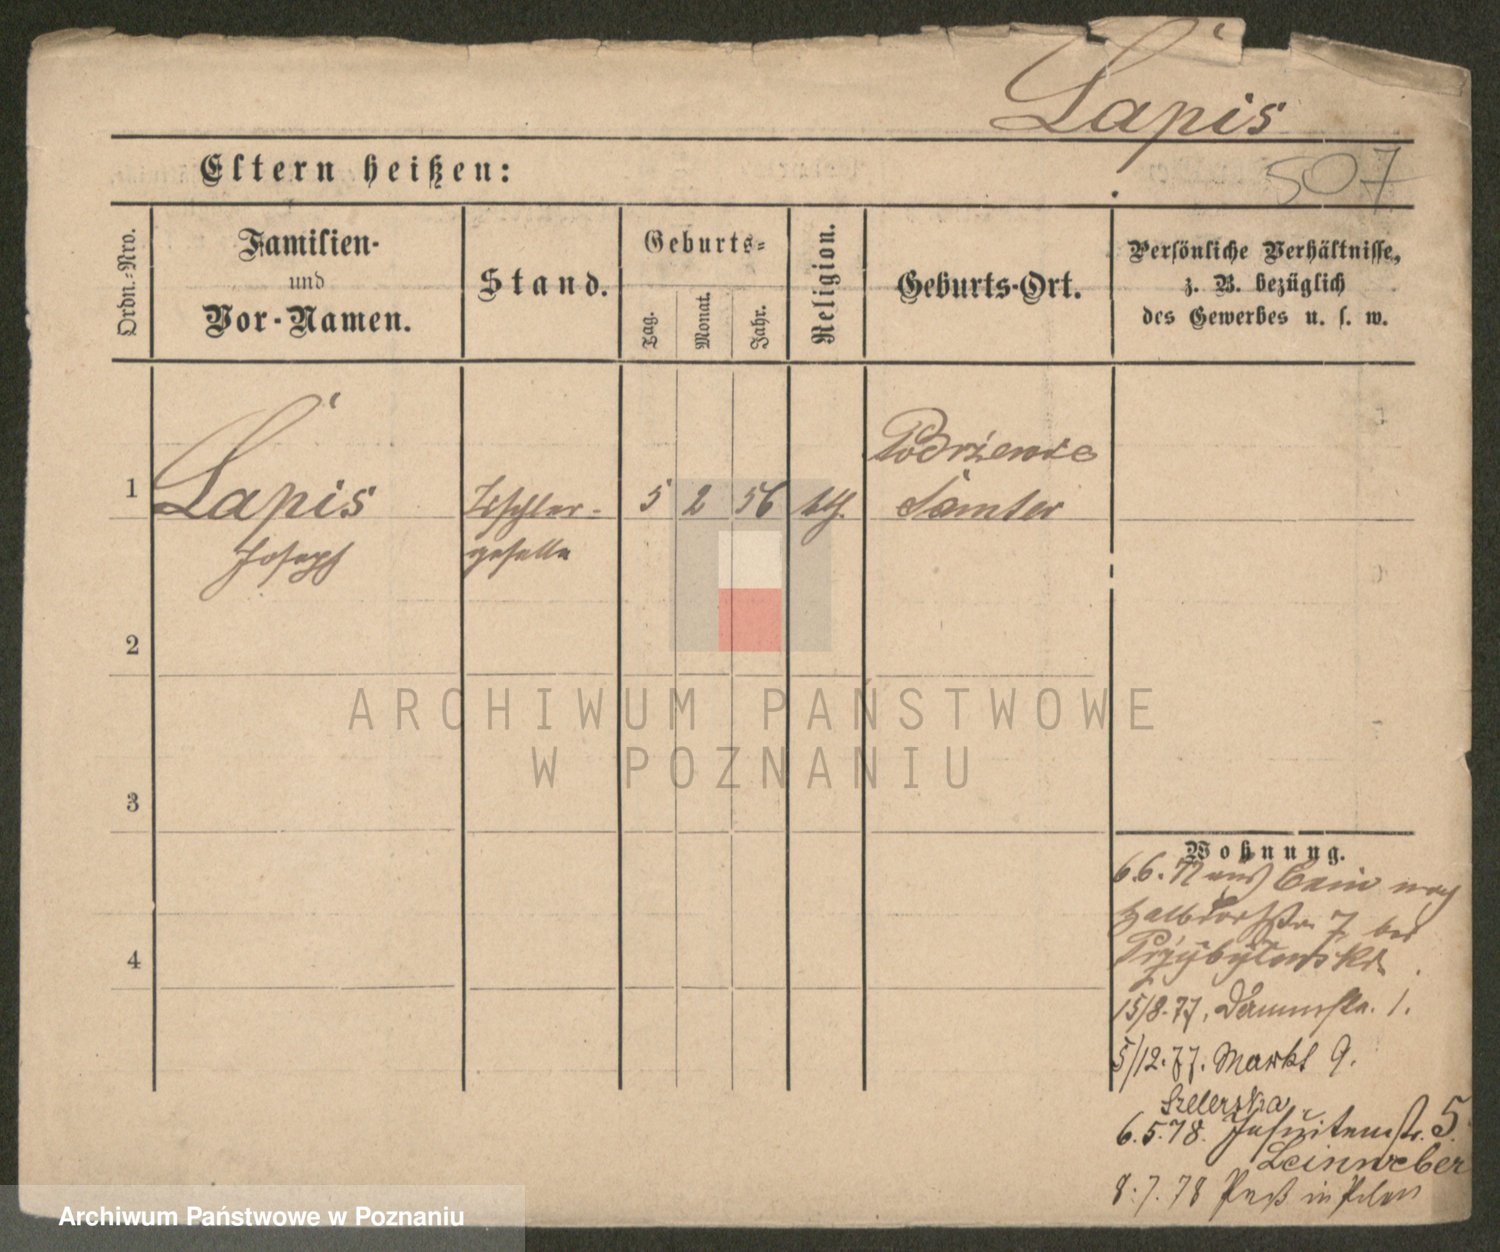 Lapis
507
Eltern heißen:
Ordn.-Nro.
Familien-
und
Vor-Namen.
Stand.
Geburts-
Tag.
Monat.
Jahr.
Religion.
Geburts-Ort.
Persönliche Verhältnisse,
z. B. bezüglich
des Gewerbes u. s. w.
1
Lapis
Joseph
Tischler-
geselle
5
2
56
kth.
Podrzewie
Samter
2
3
4
ARCHIWUM PAŃSTWOWE
W POZNANIU
Wohnung.
6.6.77 aus
Halbdorfstr. 7 bei
Przybylowski
15/8.77, Dammstr. 1.
5/12.77. Markt 9.
6.5.78. Jesuitenstr. 5.
Leinweber
8.7.78 in
Archiwum Państwowe w Poznaniu